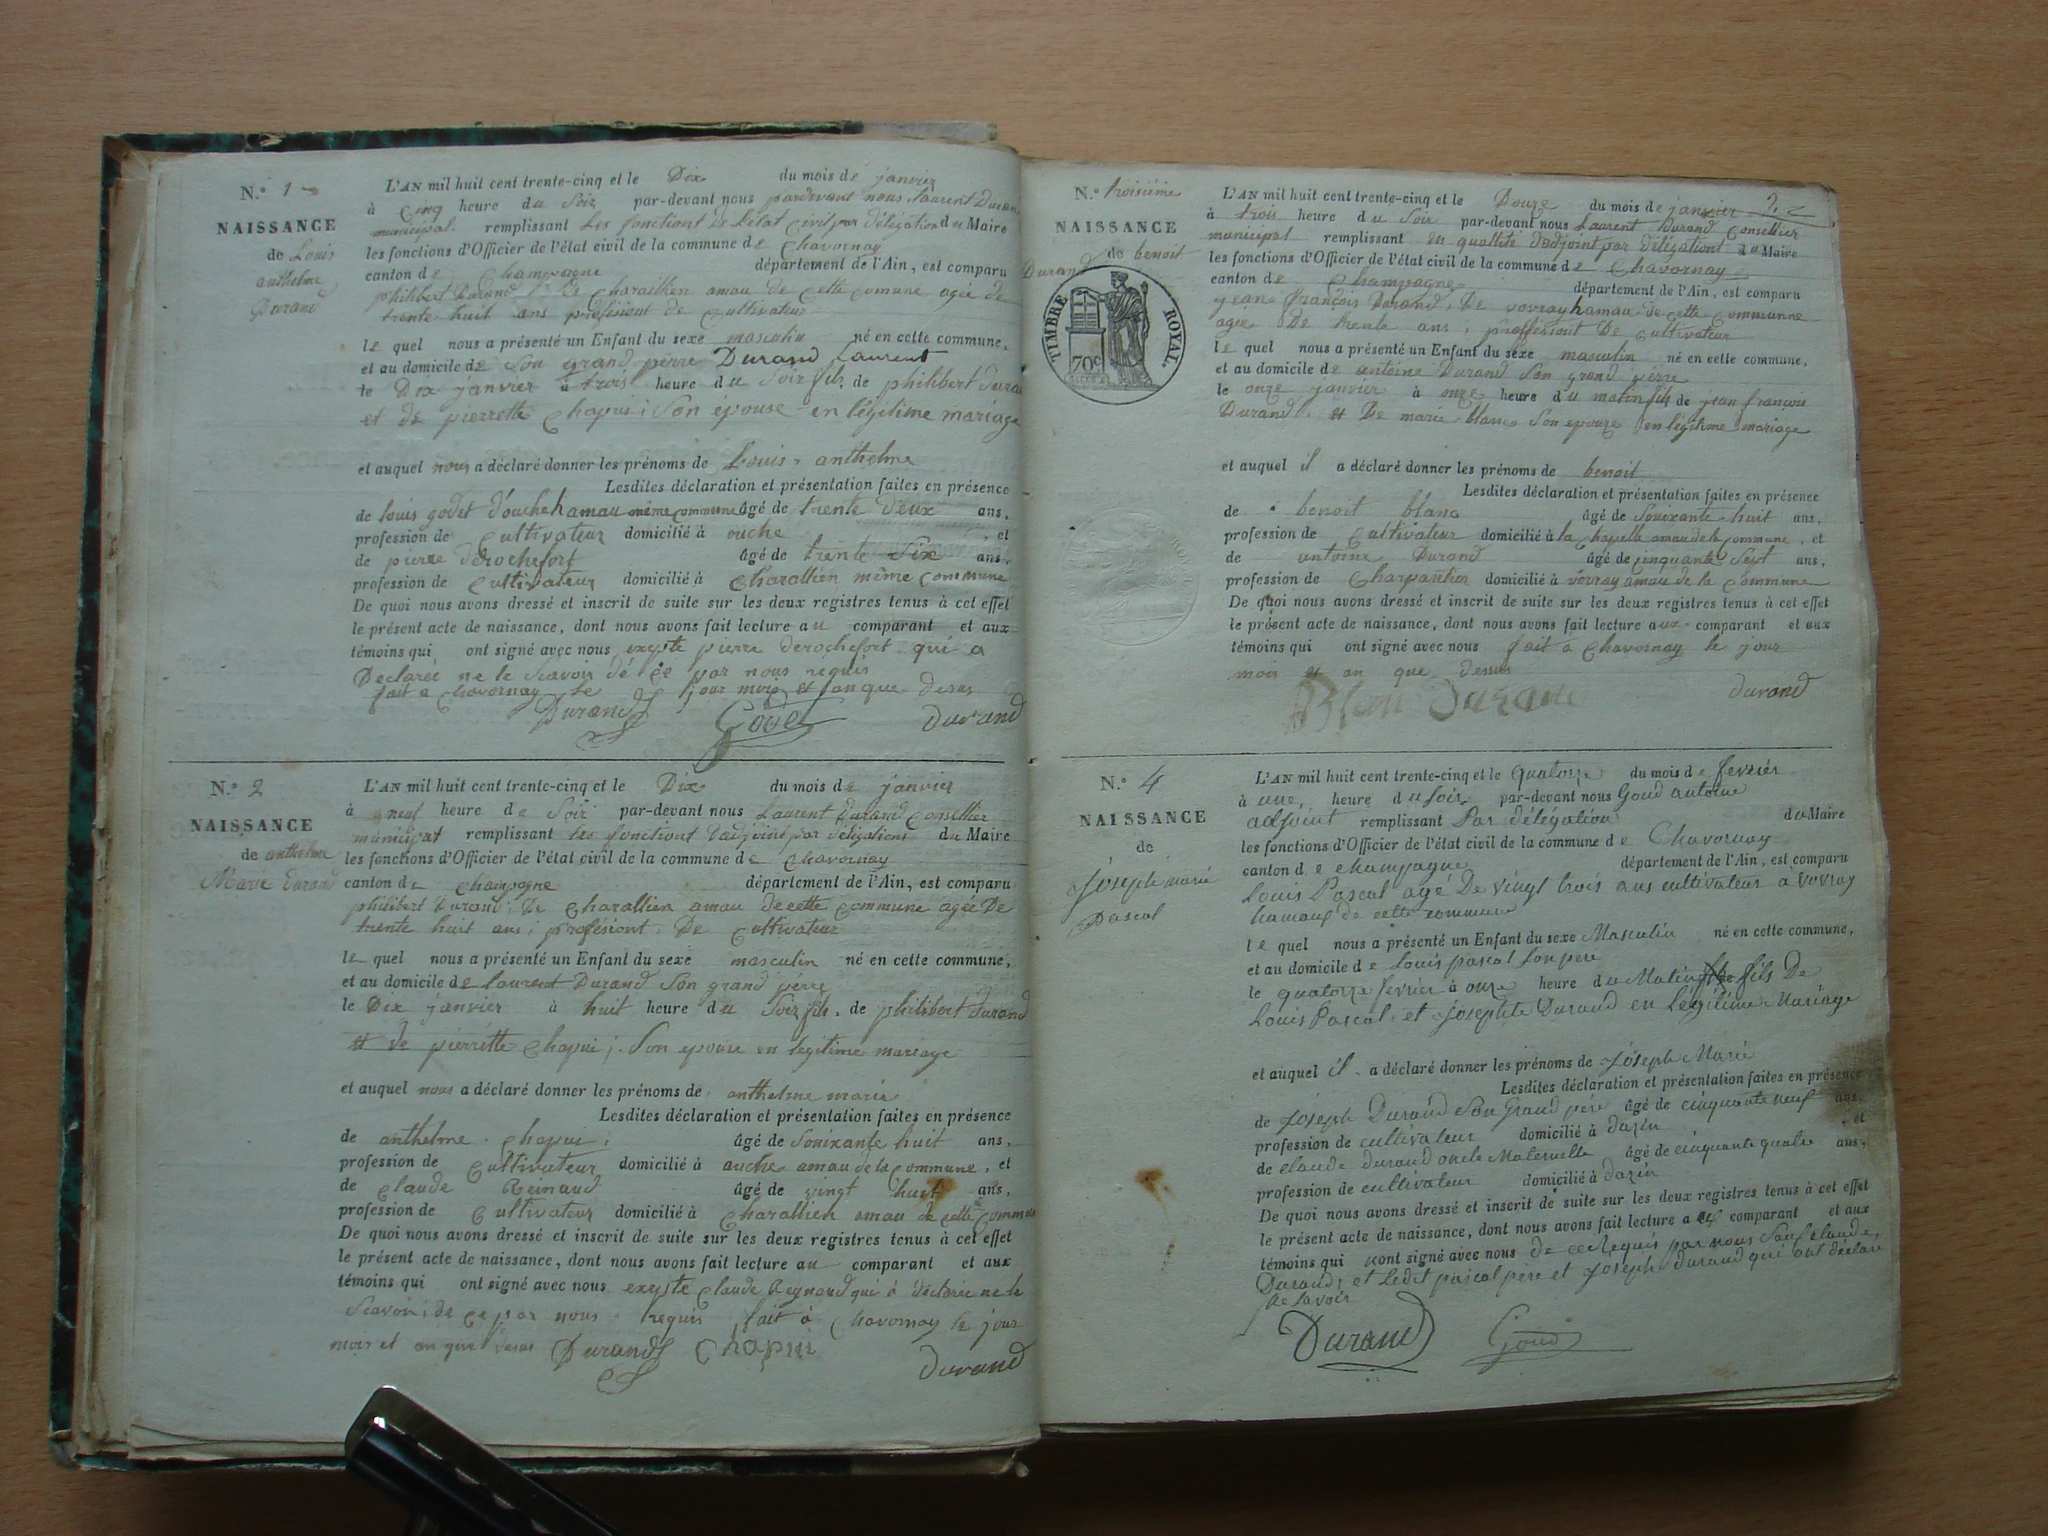 N.º 1
NAISSANCE
de Louis
anthelme
Durand
L'AN mil huit cent trente-cinq et le Dix du mois de janvier
à cinq heure du Soir par-devant nous pardevant nous Laurent Durand
municipal remplissant les fonctions de l'état civil par délégation du Maire
les fonctions d'Officier de l'état civil de la commune de Chavornay
canton de Champagne département de l'Ain, est comparu
philibert Durand De Charaillien amau de cette comune agée de
trente huit ans profesiont de cultivateur
le quel nous a présenté un Enfant du sexe masculin né en cette commune,
et au domicile de Son grand pierre Durand Laurent
le Dix janvier à trois heure du Soir fils de philibert Durand
et de pierrette Chapui; Son épouse en légitime mariage
et auquel nous a déclaré donner les prénoms de Louis anthelme
Lesdites déclaration et présentation faites en présence
de louis godet d'ouche hamau même commune âgé de trente deux ans,
profession de Cultivateur domicilié à ouche , et
de pierre derochefort âgé de trente Six ans,
profession de Cultivateur domicilié à Charallien même commune
De quoi nous avons dressé et inscrit de suite sur les deux registres tenus à cet effet
le présent acte de naissance, dont nous avons fait lecture au comparant et aux
témoins qui ont signé avec nous exepte pierre derochefort qui a
Declarée ne le Scavoir dé ce par nous requis
fait a Chavornay le jour mois et an que desus
Durand Godet Durand
N.º 2
NAISSANCE
de anthelme
Marie durand
L'AN mil huit cent trente-cinq et le Dix du mois de janvier
à neuf heure de Soir par-devant nous Laurent Durand Conseillier
municipat remplissant les fonctiont dadjoint par délégations du Maire
les fonctions d'Officier de l'état civil de la commune de Chavornay
canton de Champagne département de l'Ain, est comparu
philibert Durand, De Charallien amau decette commune agée De
trente huit ans, profesiont De Cultivateur
le quel nous a présenté un Enfant du sexe masculin né en cette commune,
et au domicile de laurent Durand Son grand pérre
le Dix janvier à huit heure du Soir fils de philibert Durand
et de pierrette Chapui; Son epouse en legitime mariage
et auquel nous a déclaré donner les prénoms de anthelme marie
Lesdites déclaration et présentation faites en présence
de anthelme Chapui, âgé de Souixante huit ans,
profession de Cultivateur domicilié à ouche amau de la Commune, et
de Claude Reinaud âgé de vingt huit ans,
profession de Cultivateur domicilié à Charallien amau de cette Commune
De quoi nous avons dressé et inscrit de suite sur les deux registres tenus à cet effet
le présent acte de naissance, dont nous avons fait lecture au comparant et aux
témoins qui ont signé avec nous exepte Claude Reynaud qui à déclarée ne le
Scavoir, de ce par nous requis fait à Chavornay le jour
mois et an que desus Durand Chapui
Durand
N.º troisième
NAISSANCE
de benoit
Durand
TIMBRE ROYAL
70c
L'AN mil huit cent trente-cinq et le Douze du mois de janvier 2
à trois heure du Soir par-devant nous Laurent Durand Conseillier
municipal remplissant en quallité dadjoint par délégationt du Maire
les fonctions d'Officier de l'état civil de la commune de Chavornay
canton de Champagne département de l'Ain, est comparu
jean françois Durand, De vovray hamau de cette communne
agée De trente ans, proffesiont De Cultivateur
le quel nous a présenté un Enfant du sexe masculin né en cette commune,
et au domicile de antoine Durand Son grand pérre
le onze janvier à onze heure du matin fils de jean françois
Durand et De marie blanc Son epouze en legitime mariage
et auquel il a déclaré donner les prénoms de benoit
Lesdites déclaration et présentation faites en présence
de benoit blanc âgé de Souixante huit ans,
profession de Cultivateur domicilié à la chapelle amau de la commune, et
de antoine Durand âgé de cinquante Sept ans,
profession de Charpantier domicilié à vovray amau de la Commune
De quoi nous avons dressé et inscrit de suite sur les deux registres tenus à cet effet
le présent acte de naissance, dont nous avons fait lecture aux comparant et aux
témoins qui ont signé avec nous fait à Chavornay le jour
mois et an que desus
Blan Durand Durand
N.º 4
NAISSANCE
de
Joseph marie
Pascal
L'AN mil huit cent trente-cinq et le quatorze du mois de fevriér
à une, heure du Soir par-devant nous Goud antoine
adjoint remplissant Par délégation du Maire
les fonctions d'Officier de l'état civil de la commune de Chavornay
canton de champagne département de l'Ain, est comparu
Louis Pascal agé De vingt trois ans cultivateur a vovray
hamaux de cette commune
le quel nous a présenté un Enfant du sexe Masculin né en cette commune,
et au domicile de Louis pascal Son pere
le quatorze fevrier à onze heure du Matin fils De
Louis Pascal et Josephte Durand en Légitime Mariage
et auquel il a déclaré donner les prénoms de Joseph Marie
Lesdites déclaration et présentation faites en présence
de Joseph Durand Son Grand père âgé de cinquante neuf ans,
profession de cultivateur domicilié à dazin , et
de claude durand oncle Maternelle âgé de cinquante quatre ans,
profession de cultivateur domicilié à dazin
De quoi nous avons dressé et inscrit de suite sur les deux registres tenus à cet effet
le présent acte de naissance, dont nous avons fait lecture a comparant et aux
témoins qui ont signé avec nous de ce Requis par nous Sauf claude
Durand, et Ledit pascal père et Joseph durand qui ont déclaré
ne Savoir
Durand Goud